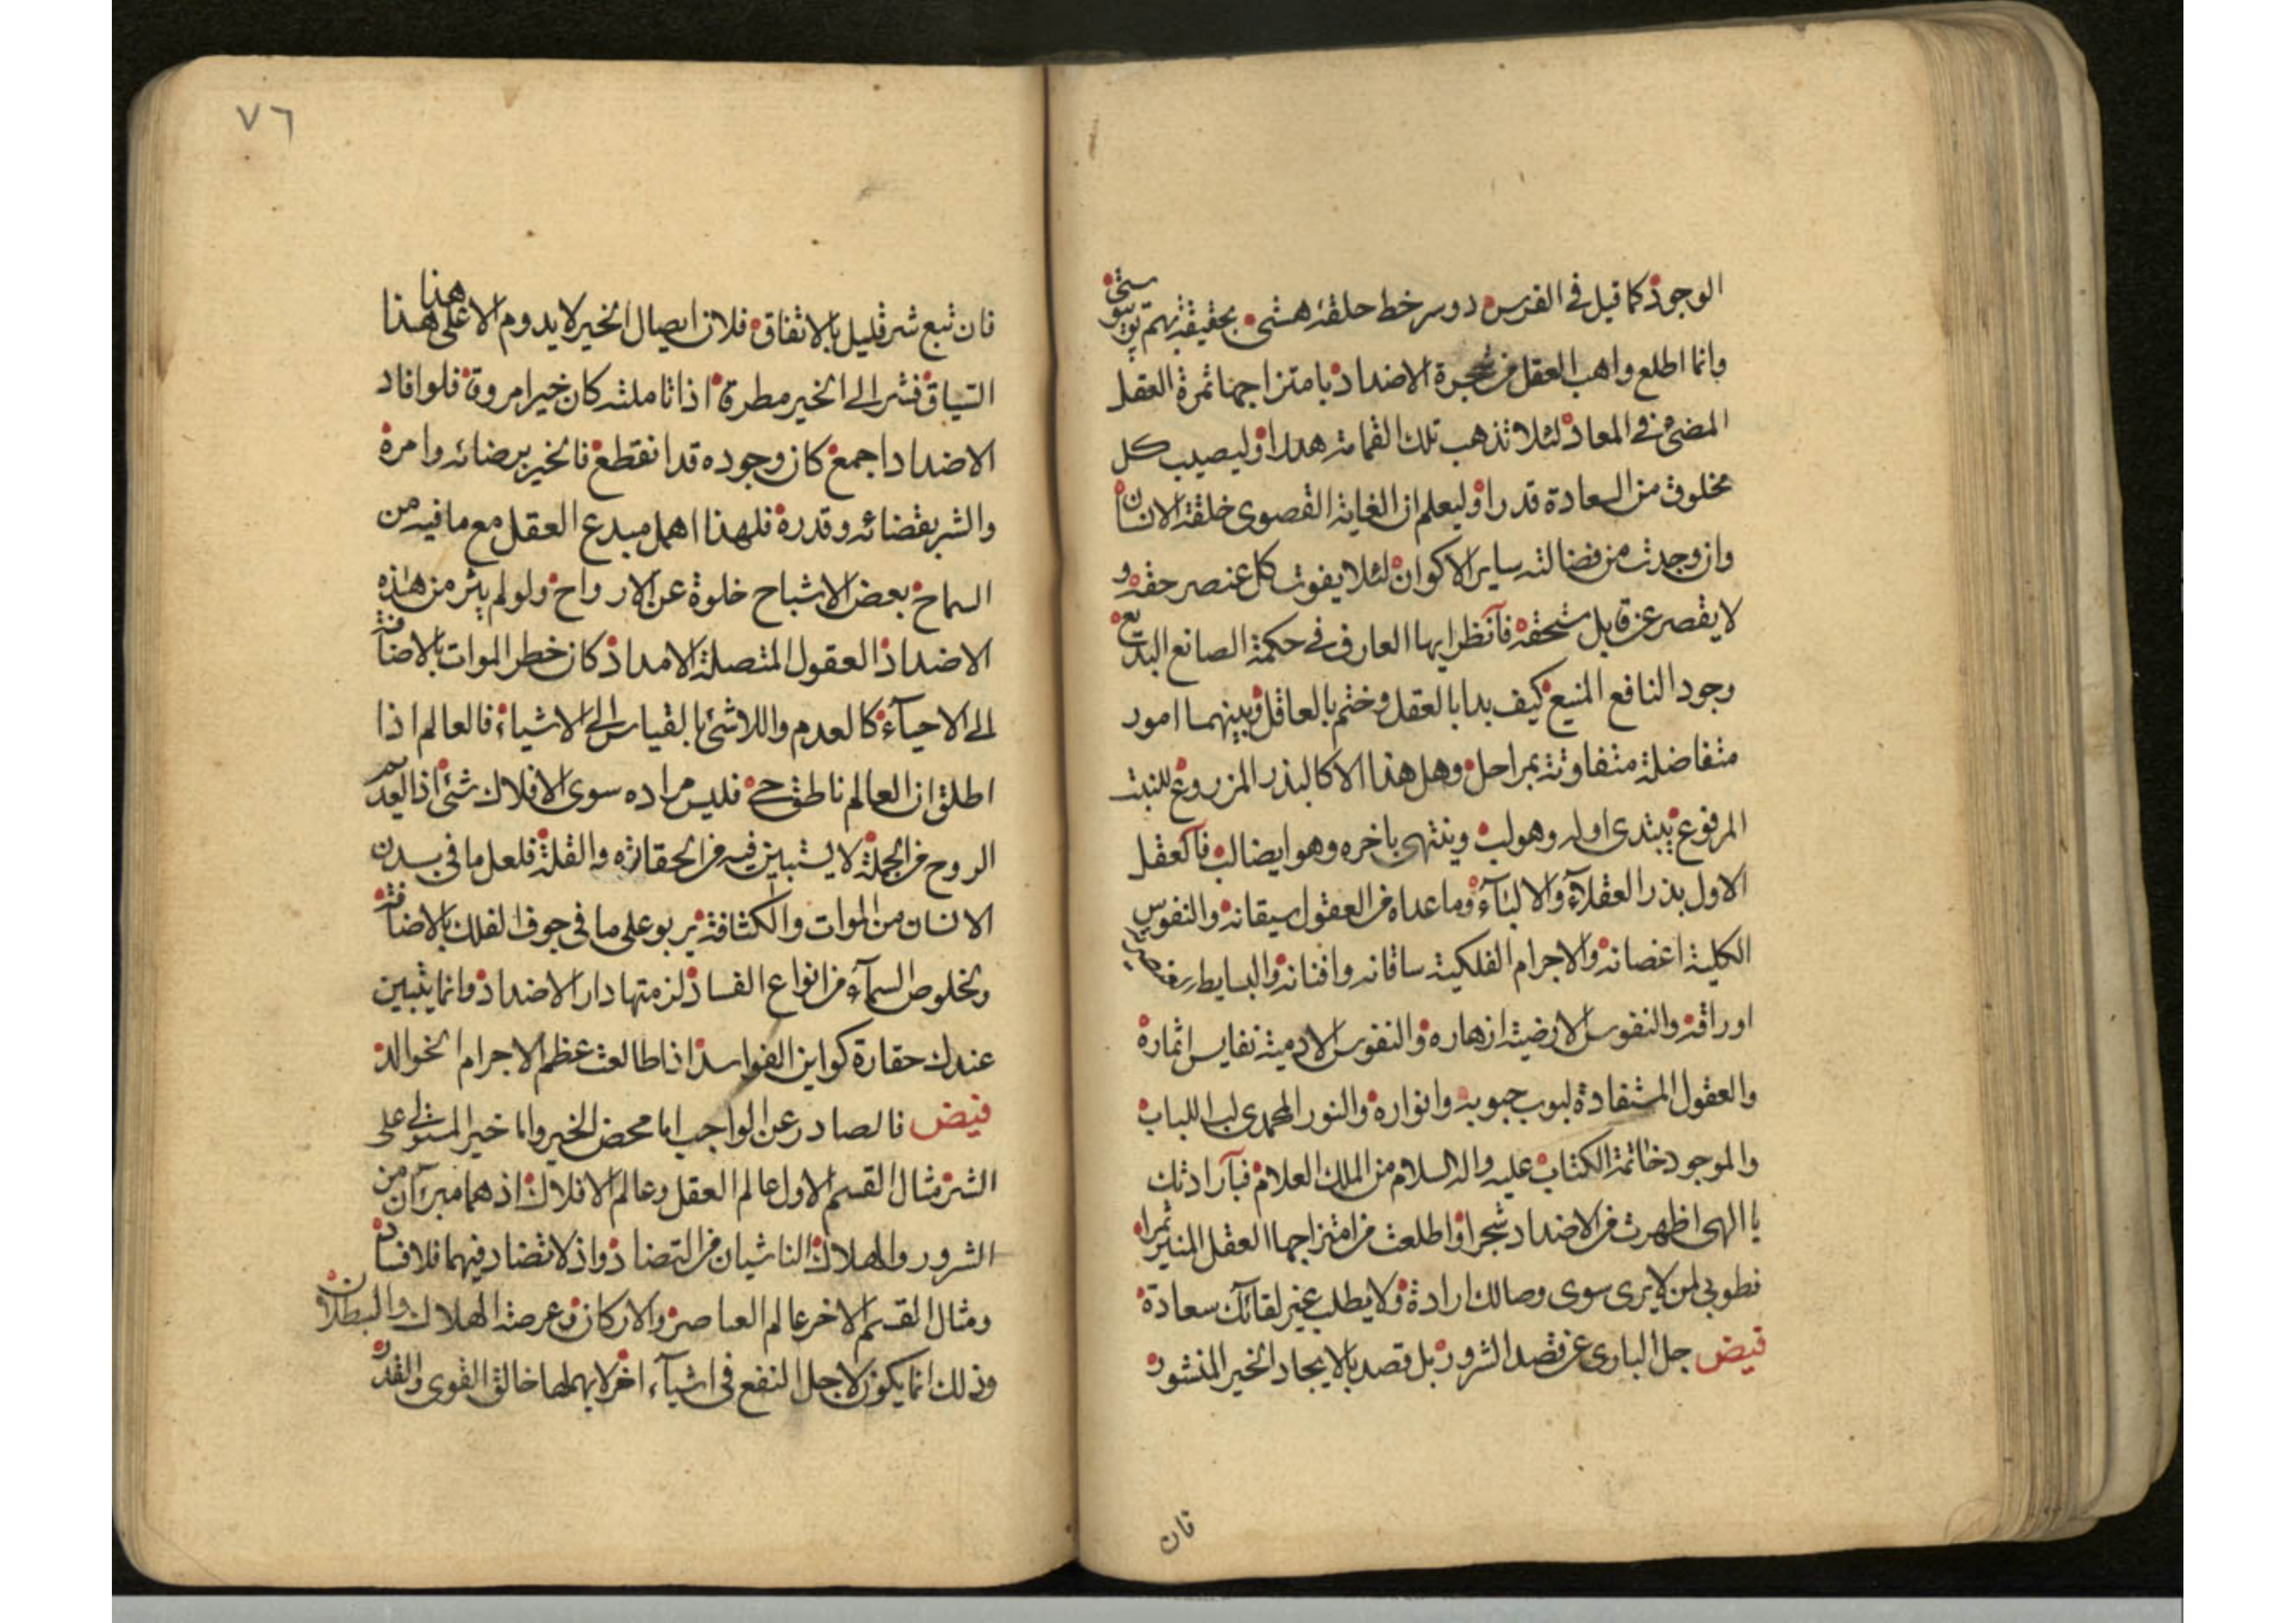 الوجود كما قيل في الفرس دو سر خط حلقۀ هستى بحقيقة بهم تو پيوستى
وانما اطلع واهب العقل من شجرة الاضداد بامتزاجها ثمرة العقل
المضئ في المعاد لئلا تذهب تلك القمامة هدرا وليصيب كل
مخلوق من السعادة قدرا وليعلم ان الغاية القصوى خلقة الانسان
وان وجدت من فضالته ساير الاكوان لئلا يفوت كل عنصر حقه و
لا يقصر عن قابل مستحقه فانظر ايها العارف في حكمة الصانع البديع
وجود النافع المنيع كيف بدا بالعقل وختم بالعاقل وبينهما امور
متفاضلة متفاوتة بمراحل وهل هذا الا كالبذر المزروع للنبت
المرفوع يبتدى اوله وهو لب وينتهى باخره وهو ايضا لب فالعقل
الاول بذر العقلاء والالباء وما عداه من العقول سيقانه والنفوس
الكلية اغصانه والاجرام الفلكية ساقانه وافنانه والبسايط العنصرية
اوراقه والنفوس الارضية ازهاره والنفوس الادمية نفايس اثماره
والعقول المستفادة لبوب حبوبه وانواره والنور المحمدى لب اللباب
والموجود خاتمة الكتاب عليه واله السلام من الملك العلام فبارادتك
يا الهى اظهرت من الاضداد شجرا واطلعت من امتزاجها العقل المنير ثمرا
فطوبى لمن لا يرى سوى وصالك ارادة ولا يطلب غير لقائك سعادة
فيض جل البارى عن قصد الشرور بل قصد بالايجاد الخير المنشور
فان
٧٦
فان تبع شر قليل بالاتفاق فلان ايصال الخير لا يدوم الا على هذا هذا
السياق فشر الى الخير مطرق اذا تاملته كان خيرا مروق فلو افاد
الاضداد اجمع كان وجوده قد انقطع فالخير برضائه وامره
والشر بقضائه وقدره فلهذا اهمل مبدع العقل مع ما فيه من
السماح بعض الاشباح خلوة عن الارواح ولو لم يثر من هذه
الاضداد العقول المتصلة الامداد كان خطر الموات بالاضافة
الى الاحياء كالعدم واللاشئ بالقياس الى الاشياء فالعالم اذا
اطلق ان العالم ناطق حى فليس مراده سوى الافلاك شئ اذ العديم
الروح من الجملة لا يستبين فيه من الحقارة والقلة فلعل ما في بدن
الانسان من الموات والكثافة يربو على ما في جوف الفلك بالاضافة
ولخلوص السماء من انواع الفساد لزمتها دار الاضداد وانما يتبين
عندك حقارة كواين الفواسد اذا طالعت عظم الاجرام الخوالد
فيض فالصادر عن الواجب اما محض الخير واما خير المستولى على
الشر مثال القسم الاول عالم العقل وعالم الافلاك اذ هما مبران من
الشرور والهلاك الناشيان من التضاد واذ لا تضاد فيهما فلا فساد
ومثال القسم الاخر عالم العناصر والاركان في عرصة الهلاك والبطلان
وذلك انما يكون لاجل النفع في اشياء اخر لا يهملها خالق القوى والقدر